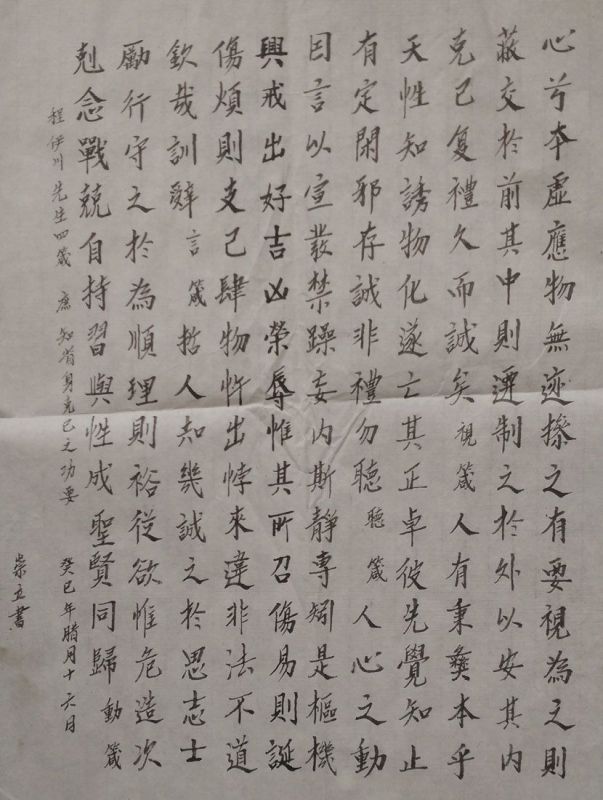 心兮本虛應物無迹操之有要視為之則
蔽交於前其中則遷制之於外以安其内
克己复禮久而誠矣視箴人有秉彝本乎
天性知誘物化遂亡其正卓彼先覺知止
有定閑邪存誠非禮勿聽聽箴人心之動
因言以宣發禁躁妄内斯靜專矧是樞機
興戒出好吉凶榮辱惟其所召傷易則誕
傷煩則支己肆物忤出悖來違非法不道
欽哉訓辭言箴哲人知幾誠之於思志士
勵行守之於為順理則裕從欲惟危造次
剋念戰兢自持習與性成聖賢同歸動箴
程伊川先生四箴 庶知省身克己之功要 癸巳年腊月十六日
崇五書